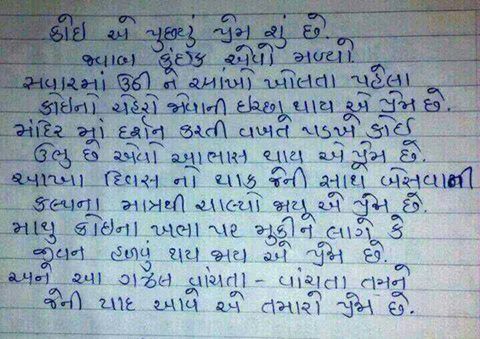 કોઇ એ પુછ્યું પ્રેમ શું છે.
જવાબ કંઇક એવો મળ્યો.
સવારમાં ઉઠી ને આંખો ખોલતા પહેલા
કોઇનો ચહેરો જોવાની ઇચ્છા થાય એ પ્રેમ છે.
મંદિર માં દર્શન કરતી વખતે પડખે કોઇ
ઉભુ છે એવો આભાસ થાય એ પ્રેમ છે.
આખા દિવસ નો થાક જેની સાથે બેસવાની
કલ્પના માત્રથી ચાલ્યો જાય એ પ્રેમ છે.
માથુ કોઇના ખભા પર મુકીને લાગે કે
જીવન હળવું થય જાય એ પ્રેમ છે.
અને આ ગઝલ વાંચતા - વાંચતા તમને
જેની યાદ આવે એ તમારો પ્રેમ છે.